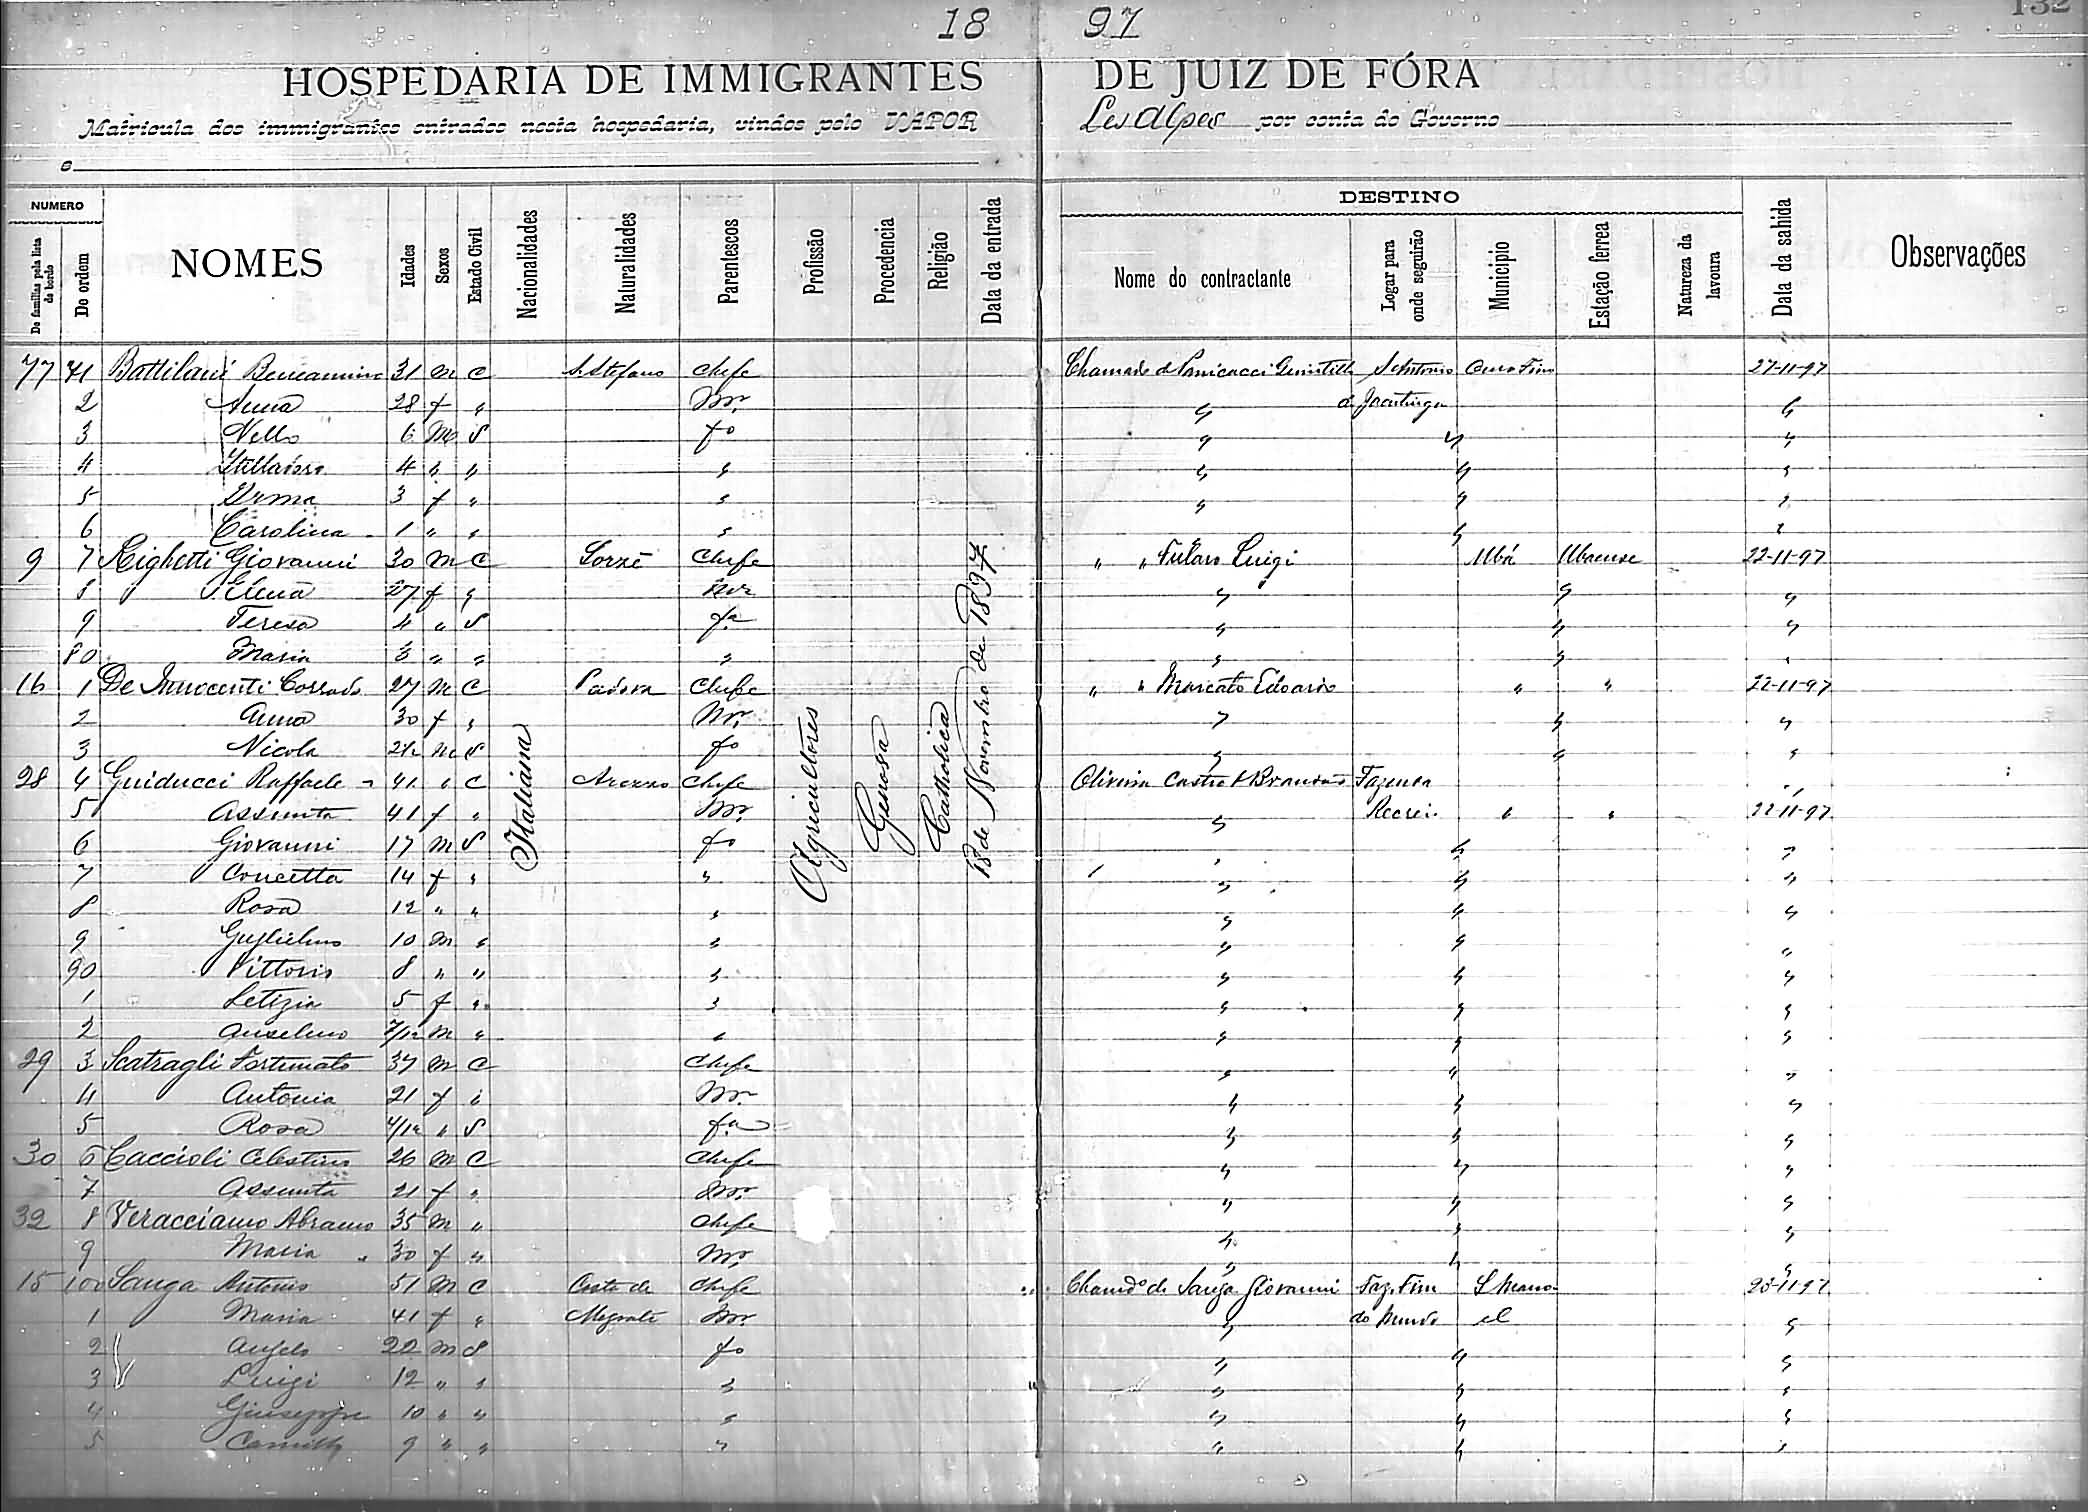 132
18 97
HOSPEDARIA DE IMMIGRANTES DE JUIZ DE FÓRA
Matricula dos immigrantes entrados nesta hospedaria, vindos pelo VAPOR Les Alpes por conta do Governo
e
NUMERO
De familias pela lista de bordo
De ordem
NOMES
Idades
Sexos
Estado Civil
Nacionalidades
Naturalidades
Parentescos
Profissão
Procedencia
Religião
Data da entrada
DESTINO
Nome do contractante
Logar para onde seguirão
Municipio
Estação ferrea
Natureza da lavoura
Data da sahida
Observações
Italiana
Agricultores
Genova
Catholica
18 de Novembro de 1897
77 71 Battilani 31 m C S. Stefano Chefe Chamado d S. Antonio Ouro Fino 27-11-97
2 Anna 28 f " Mr. " d Jacutinga "
3 Nello 6 m S fo " " "
4 4 " " " " " "
5 Irma 3 f " " " " "
6 Carolina 1 " " " " "
9 7 Righetti Giovanni 30 m C Chefe " " Luigi Ubá Ubaense 22-11-97
8 Elena 27 f " mr " " "
9 Teresa 4 " S fa " " "
80 Maria 3 " " " " " "
16 1 De Innocenti Corrado 27 m C Padova Chefe " " Marcato Edoardo " " 22-11-97
2 Anna 30 f " Mr. " " "
3 Nicola m S fo " " "
28 4 Guiducci Raffaele 41 " C Arezzo Chefe Oliveira Castro & Brandão Fazenda
5 Assunta 41 f " Mr. " Recreio " " 22-11-97
6 Giovanni 17 m S fo " " "
7 Concetta 14 f " " " " "
8 Rosa 12 " " " " " "
9 Guglielmo 10 m " " " " "
90 Vittorio 8 " " " " " "
1 Letizia 5 f " " " " "
2 Anselmo 7/12 m " " " " "
29 3 Scatragli Fortunato 37 m C Chefe " " "
4 Antonia 21 f " Mr. " " "
5 Rosa 4/12 " S fa " " "
30 6 Caccioli Celestino 26 m C Chefe " " "
7 Assunta 21 f " Mr. " " "
32 8 Veracciamo Abramo 35 m " Chefe " " "
9 Maria 30 f " Mr. " " "
15 100 Sanga Antonio 51 m C Costa de Chefe Chamdo de Sanga Giovanni Faz. Fim S Mano- 20-11-97
1 Maria 41 f " Mezzate Mr. " do Mundo el "
2 Angelo 22 m S fo " " "
3 Luigi 12 " " " " " "
4 Giuseppe 10 " " " " " "
5 Camillo 9 " " " " " "